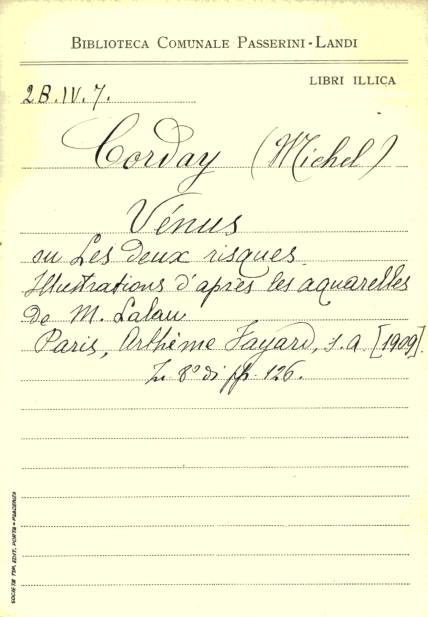 BIBLIOTECA COMUNALE PASSERINI-LANDI
LIBRI ILLICA
2B.IV.7.
Corday (Michel)
Vénus
ou Les deux risques
Illustrations d'après les aquarelles
de M. Lalau
Paris, Arthème Fayard, s.a. [1909].
In 8° di pp. 126.
SOCIETÀ TIP. EDIT. PORTA - PIACENZA